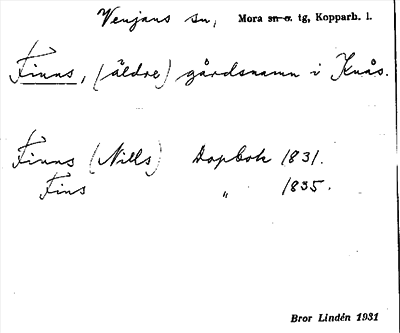 Venjans sn, Mora sn o. tg, Kopparb. l.
Finns, (äldre) gårdsnamn i Knås.
Finns (Nills) Dopbok 1831.
Fins " 1835.
Bror Lindén 1931